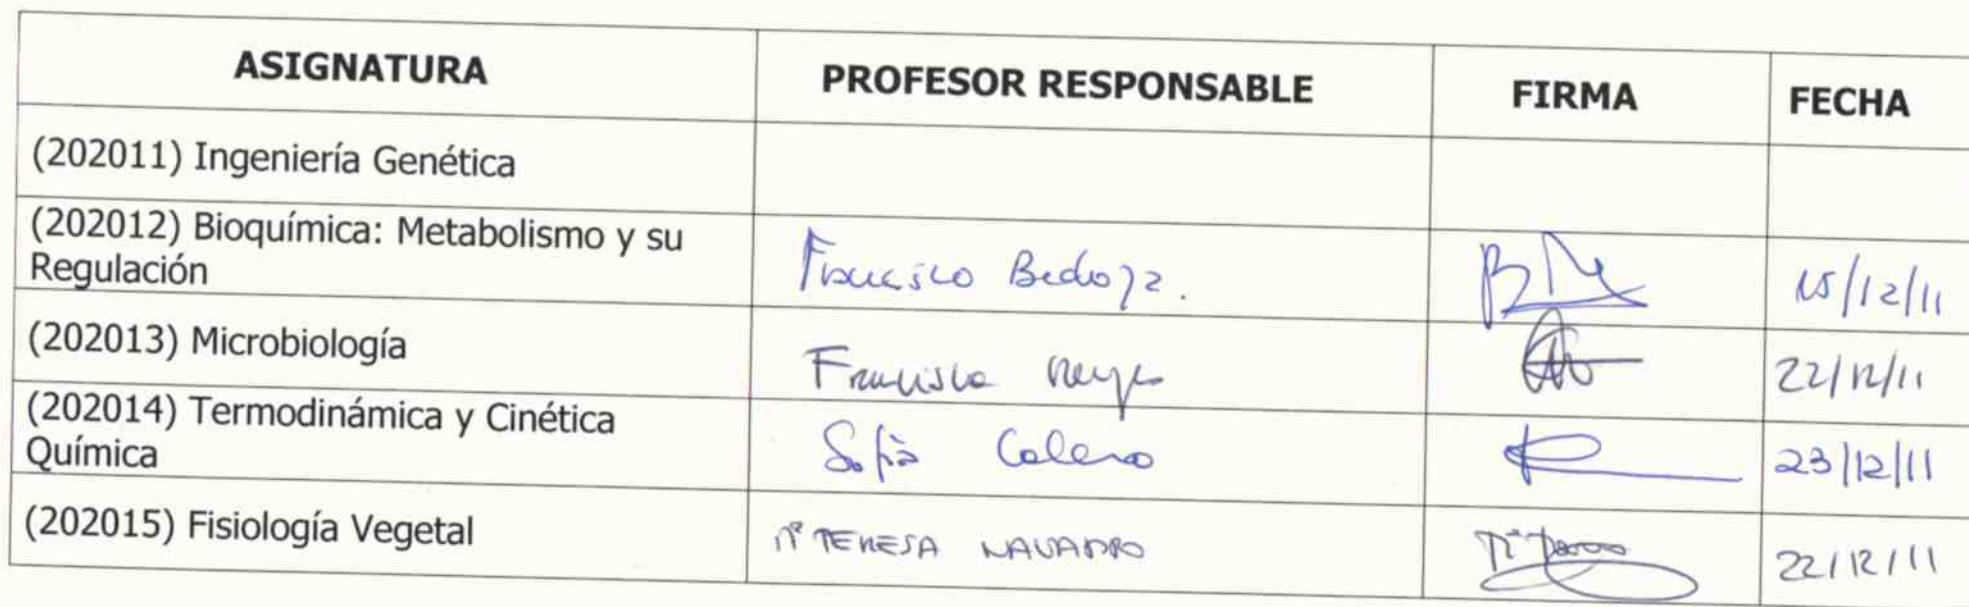 ASIGNATURA PROFESOR RESPONSABLE FIRMA FECHA
(202011) Ingeniería Genética
(202012) Bioquímica: Metabolismo y su
Regulación Francisco Bedoya. 15/12/11
(202013) Microbiología Francisca Reyes 22/12/11
(202014) Termodinámica y Cinética
Química Sofía Calero 23/12/11
(202015) Fisiología Vegetal Mª TERESA NAVARRO 22/12/11